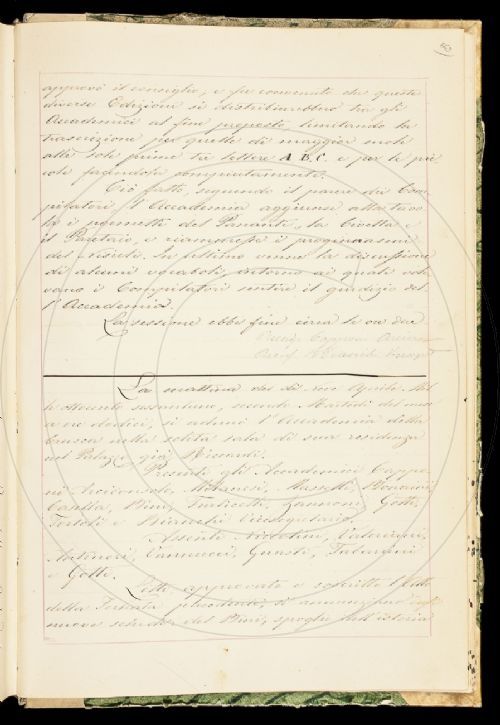 approvò il consiglio, e fu convenuto che queste
diverse Edizioni si distribuirebbero tra gli
Accademici al fine proposto, limitando la
trascrizione per quelle di maggior mole
alle sole prime tre lettere A. B. C. e per le pic-
cole facendosi compiutamente.
Ciò fatto, seguendo il parere dei Com-
pilatori, l'Accademia aggiunse alla tavo-
la i poemetti del Pananti, la Civetta e
il Paretaio, e riammesse i proginnasmi
del Nisieli. In ultimo venne la discussione
di alcuni vocaboli, intorno ai quali vole-
vano i Compilatori sentire il giudizio del-
l'Accademia.
La sessione ebbe fine circa le ore due
La mattina del dì Aprile Mil-
lottocento sessantuno, secondo Martedì del mese
a ore dodici, si adunò l'Accademia della
Crusca nella solita sala di sua residenza
nel Palazzo già Riccardi.
Presenti gli Accademici Cappo-
ni Arciconsolo, Milanesi, Bonaini,
Casella, Bini, Zannoni, Gotti,
Tortoli e Bianchi Vicesegretario.
Assenti Valeriani,
Vannucci, Guasti, Tabarrini
e Gelli.
Letto, approvato e soscritto l'atto
della Tornata precedente, si
nuove schede del Bini, spoglio dell'istoria